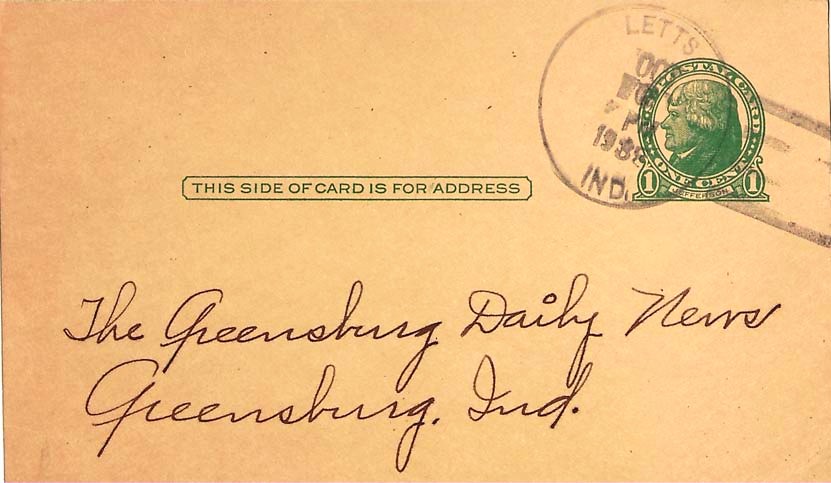 LETTS
IND.
U.S. POSTAL CARD
ONE CENT
1 1
JEFFERSON
THIS SIDE OF CARD IS FOR ADDRESS
The Greensburg Daily News
Greensburg, Ind.